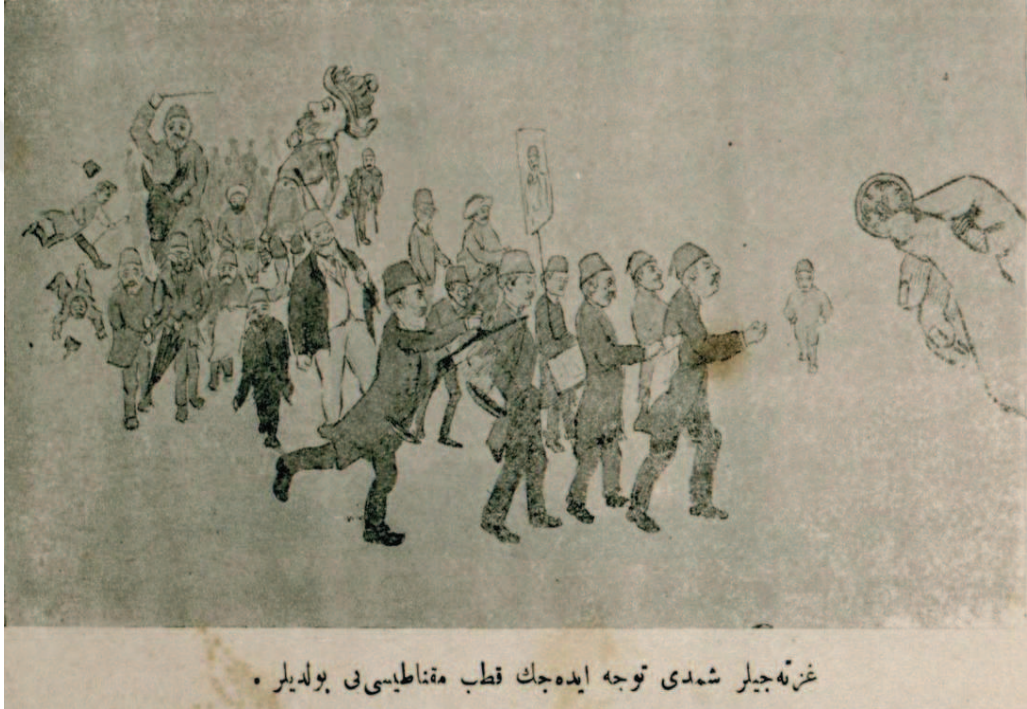 غزته‌جیلر شمدی توجه ایده‌جك قطب مقناطیسی‌یی بولدیلر .